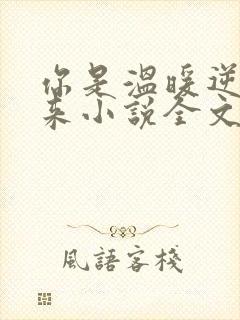 你是溫暖逆
來小說全文
風語客棧